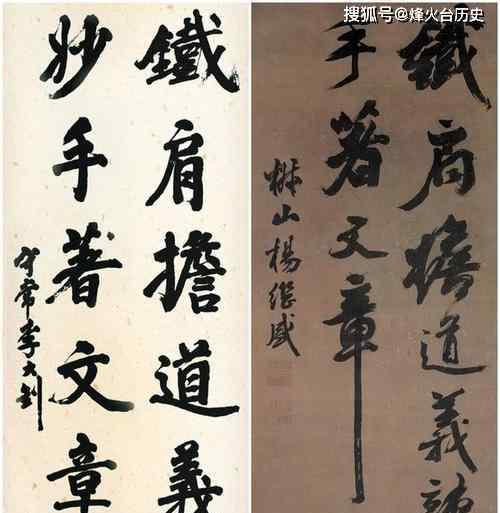 搜狐号@烽火台历史
鐵肩擔道義
妙手著文章
守常李大釗
鐵肩擔道義辣
手著文章
椒山楊继盛